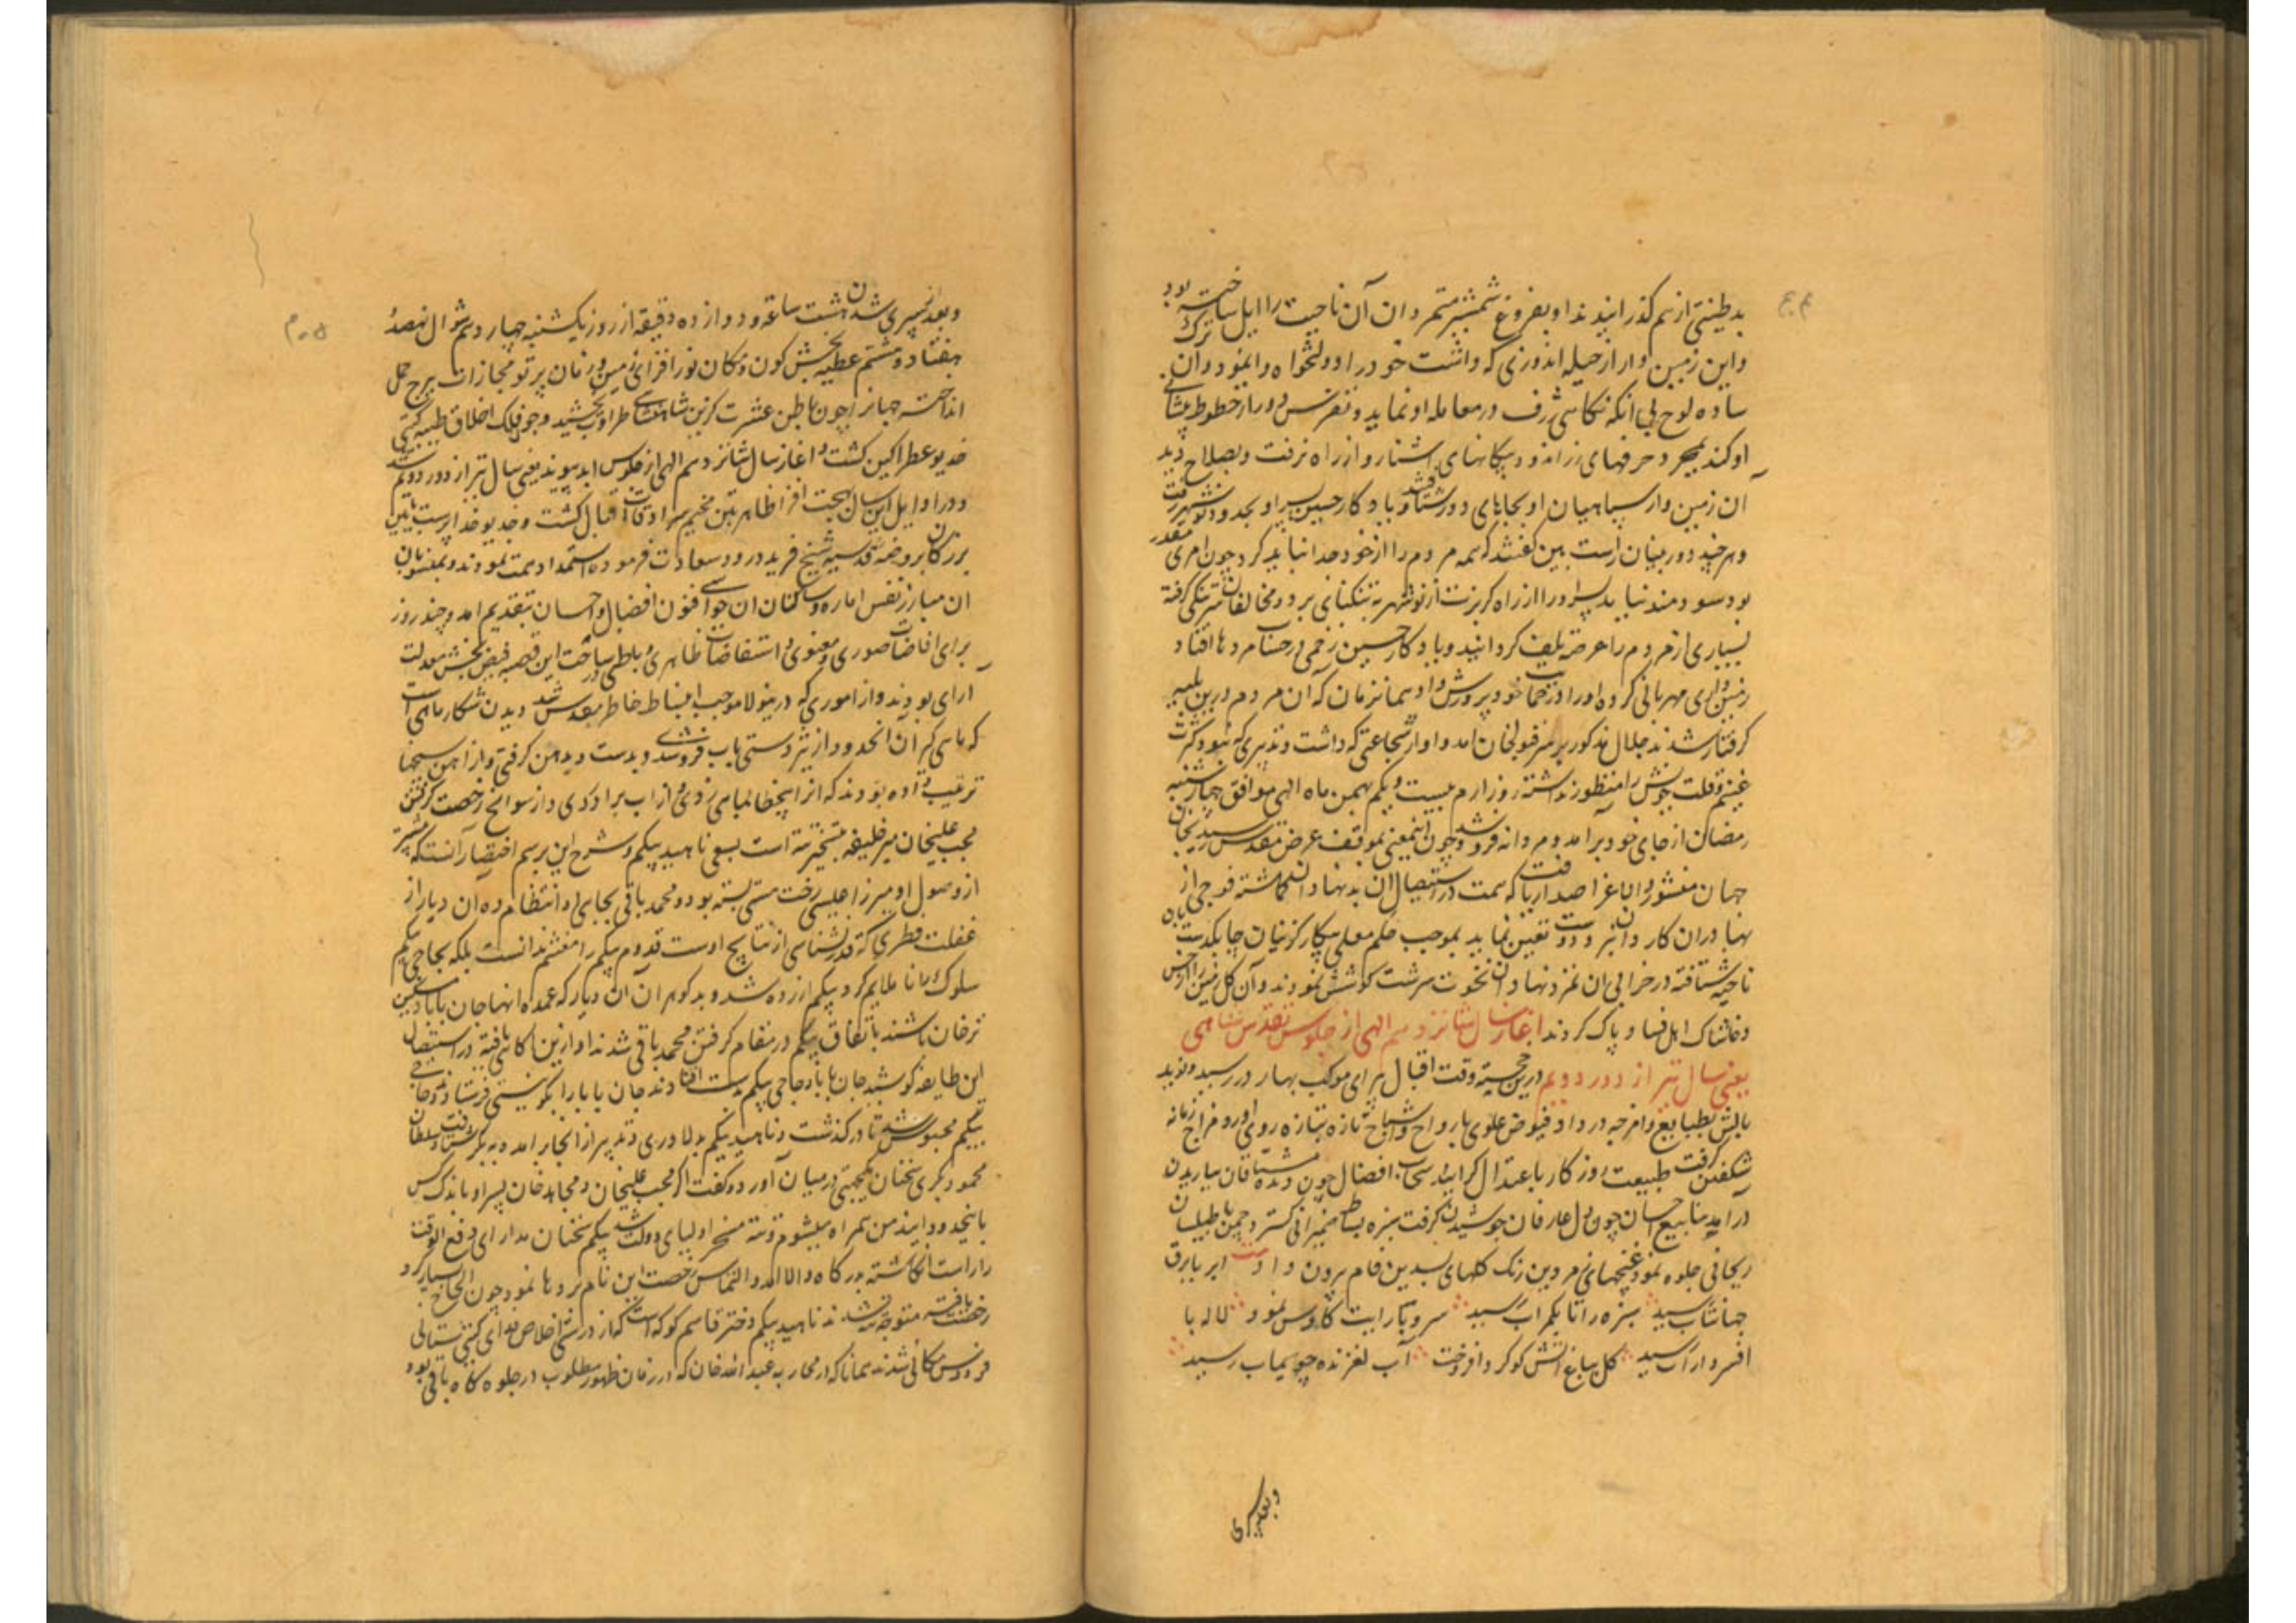 بدطینتی از هم گذرانیدند او بفروغ شمشیر متمردان آن ناحیت را ایل ساخته بود
و این زمین‌دار از حیله اندوزی که داشت خود را دولتخواه وا نمود و آن ترک
ساده لوح بی آنکه نگاهی ژرف در معامله او نماید و تفرس دور از خطوط پیشانی
او کند بمجرد حرفهای زراندود بیگانهای آشنا رو از راه نرفت و بصلاح دید
آن زمین‌دار سپاهیان او بجاهای دور دست و یادگار حسین پسر او بحدود نوشهر رفت
و هر چند دوربینان راست بین گفتند که همه مردم را از خود جدا نباید کرد چون امری مقدر
بود سودمند نیامد پسر او را از راه گریوت از نوشهر به تنگنای برد و مخالفان سرتنگی گرفته
بسیاری از مردم را عرضه تلف گردانیدند و یادگار حسین زخمی در حساب مردها افتاد
زمین‌داری مهربانی کرده او را در حمایت خود پرورش داد همان زمان که آن مردم درین بلیه
گرفتار شدند جلال مذکور بر سر قولنجان آمد و او از شجاعتی که داشت و تدبیری که نبود کثرت
غنیم و قلت خویش را منظور نداشته روز ارم بیست و یکم بهمن ماه الهی موافق چهارشنبه
رمضان از جای خود برآمد و مردانه فرو شد و چون اینمعنی بموقف عرض مقدس رسید
جهان مغشور والا باعز اصدار یافت که همت در استیصال آن بدنهادان گماشته فوجی از
بهادران کار دان نبرد دوست تعیین نماید بموجب حکم معلی پیکار گزینان چابکدست بآن
ناحیه شتافته در خرابی آن تمردنهادان نخوت سرشت کوشش نمودند و آن گل زمین را از خس
و خاشاک اهل فساد پاک کردند آغاز سال شانزدهم الهی از جلوس مقدس شاهنشاهی
یعنی سال تیر از دور دویم درین خجسته وقت اقبال پیرای موکب بهار در رسید و نوید
بالش بطبایع و امزجه در داد فیوض علوی بارواح و اشباح تازه بتازه روی آورد مزاج زمانه
شکفتن گرفت طبیعت روزگار باعتدال گرایید سحاب افضال چون دیده مشتاقان بباریدن
درآمد ینابیع احسان چون دل عارفان جوشیدن گرفت سبزه بساط ضمیرانی گسترد و چمن با طیلسان
ریحانی جلوه نمود غنچهای زمردین رنگ گلهای بسدین فام بیرون داد بیت ابر با برق
جهانتاب رسید سبزه را تا بکمر آب رسید سرو با رایت کاوس نمود لاله با
افسر داراب رسید گل بباغ آتش گوگرد افروخت آب لغزنده چو سیماب رسید
وبعد سپری
و بعد سپری شدن هشت ساعت و دوازده دقیقه از روز یکشنبه چهاردهم شوال نهصد
هفتاد و هشتم عطیه بخش کون و مکان نورافزای زمین و زمان پرتو محاذات ببرج حمل
انداخته جهان را چون باطن عشرت گزین شاهنشاهی طراوت بخشید و جو فلک اخلاق طیبه گیتی
خدیو عطرآگین گشت و آغاز سال شانزدهم الهی از جلوس ابد پیوند یعنی سال تیر از دور دویم شد
و در اوایل این سال بهجت افزا ظاهر پتن مخیم سرادقات اقبال گشت و خدیو خداپرست بآیین
بزرگان بروضه قدسیه شیخ فرید درود سعادت فرموده استمداد همت نمودند و بمنسوبان
آن مبارز نفس اماره و ساکنان آن حواشی فنون افضال و احسان بتقدیم آمد و چند روز
برای افاضات صوری و معنوی و استفاضات ظاهری و باطنی ساحت این قصبه فیض بخش معدلت
آرای بودند و از اموری که درینولا موجب انبساط خاطر مقدس شد دیدن شکار ماهی است
که ماهی گیر آن حدود از تیزدستی بآب فرو شدی و بدست و دهن گرفتی و از آهن سیخها
ترتیب داده بودند که آنرا بماهی زدی و از آب برآوردی و از سوانح رخصت گرفتن
محب علیخان میر خلیفه بتسخیر تته است بسعی ناهید بیگم و شرح این برسم اختصار آنست که پیشتر
از وصول او میرزا عیسی رخت هستی بسته بود و محمد باقی بجای او انتظام ده آن دیار از
غفلت فطری که قدرنشناسی از نتایج اوست قدوم بیگم را مغتنم ندانست بلکه بحاجی بیگم
سلوک ناملایم کرد بیگم آزرده شد و بدگوهران آن دیار که عمده آنها جان بابا و مسکین
ترخان باشند باتفاق بیگم در مقام گرفتن محمد باقی شدند او ازین آگاهی یافته در استیصال
این طایفه کوشید جان بابا و حاجی بیگم بدست افتادند جان بابا را بکوی نیستی فرستاد و حاجی
بیگم محبوس شد تا در گذشت و ناهید بیگم بدلاوری و تدبیر از آنجا برآمد و به بکر شتافت و سلطان
محمود بکری سخنان یکجهتی در میان آورده گفت اگر محب علیخان و مجاهد خان پسر او با اندک کس
باینحدود آیند من همراه میشوم و تته مسخر اولیای دولت شد بیگم سخنان مدارای دفع الوقت
را راست انگاشته بدرگاه والا آمد و التماس رخصت این نام بردها نمود چون الحاح بسیار کرد
رخصت یافته متوجه شدند ناهید بیگم دختر قاسم کوکه است که از درستی اخلاص فدای گیتی ستانی
فردوس مکانی شدند همانا که در محاربه عبدالله خان که در زمان ظهور مطلوب در جلوه گاه باقی بود